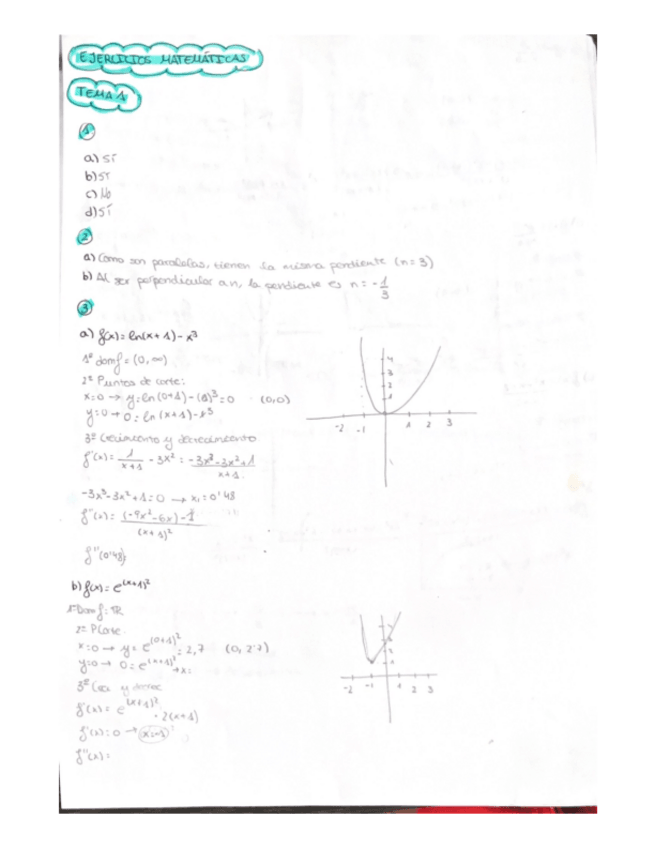 EJERCICIOS MATEMÁTICAS
TEMA 1
1
a) SÍ
b) SÍ
c) No
d) SÍ
2
a) Como son paralelas, tienen la misma pendiente (n = 3)
b) Al ser perpendicular a n, la pendiente es n = -1/3
3
a) f(x) = ln(x+1) - x³
1º dom f = (0, ∞)
2º Puntos de corte:
x=0 → y = ln(0+1) - (0)³ = 0 (0,0)
y=0 → 0 = ln(x+1) - x³
3º Crecimiento y decrecimiento
f'(x) = 1/(x+1) - 3x² = (-3x³-3x²+1)/(x+1)
-3x³-3x²+1=0 → x₁=0'48
f''(x) = ((-9x²-6x)-1)/(x+1)²
f''(0'48)
4
3
2
1
-2 -1 1 2 3
b) f(x) = e^(x+1)²
1º Dom f: ℝ
2º P Corte.
x=0 → y = e^(0+1)² = 2,7 (0, 2'7)
y=0 → 0 = e^(x+1)² → x=
3º Crec y decrec
f'(x) = e^(x+1)² · 2(x+1)
f'(x) = 0 → x=-1
f''(x) =
-2 -1 1 2 3